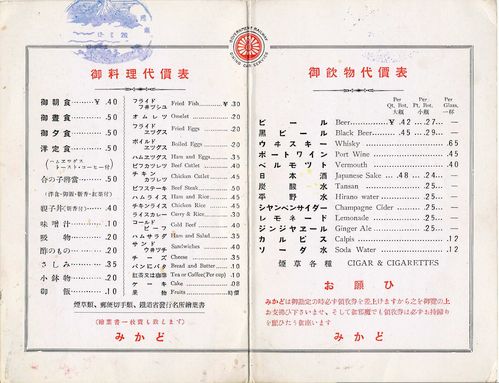 GOVERNMENT RAILWAY
DINING CAR SERVICE
御料理代價表
御朝食 ¥ .40
御晝食 .50
御夕食 .50
洋定食 .50
(ハムエヴグス トースト・コーヒー付)
合の子辨當 .50
(洋食・御飯・新香・紅茶付)
親子丼(新香付) .40
味噌汁 .10
吸物 .20
酢のもの .20
さしみ .35
小鉢物 .20
御飯 .10
フライド フ井ツシユ Fried Fish ¥ .30
オムレツ Omelet .20
フライド エツグス Fried Eggs .20
ボイルド エツグス Boiled Eggs .20
ハムエツグス Ham and Eggs .35
ビフカツレツ Beef Cutlet .40
チキン カツレツ Chicken Cutlet .45
ビフステーキ Beef Steak .50
ハムライス Ham and Rice .45
チキンライス Chicken Rice .45
ライスカレー Curry & Rice .30
コールド ビーフ Cold Beef .40
ハムサラダ Ham and Salad .35
サンド ウ井ツチ Sandwiches .40
チース Cheese .35
パンにバタ Bread and Butter .10
紅茶又は珈琲 Tea or Coffee(Per cup) .10
ケーキ Cake .08
果物 Fruits 時價
煙草類、郵便切手類、鐵道省發行名所繪葉書
(繪葉書一枚賣も致します)
みかど
御飲物代價表
Per Qt, Bot, 大瓶 Per Pt, Bot, 小瓶 Per Glass, 一杯
ビール Beer ¥ .42 .27 —
黒ビール Black Beer .45 .29 —
ウ井スキー Whisky .65
ポートワイン Port Wine .45
ベルモツト Vermouth .40
日本酒 Japanese Sake .48 .24 —
炭酸水 Tansan .25 —
平野水 Hirano water .25 —
シヤンペンサイダー Champagne Cider .25 —
レモネード Lemonade .25 —
ジンジヤエール Ginger Ale .25 —
カルピス Calpis .12
ソーダ水 Soda Water .12
煙草各種 CIGAR & CIGARETTES
お願ひ
みかどは御勘定の時必す領收券を差上げますから之を御覽の上
お支拂ひ下さいませ、そして御邪魔でも領收券は必すお持歸り
を願ひたう御座います
みかど